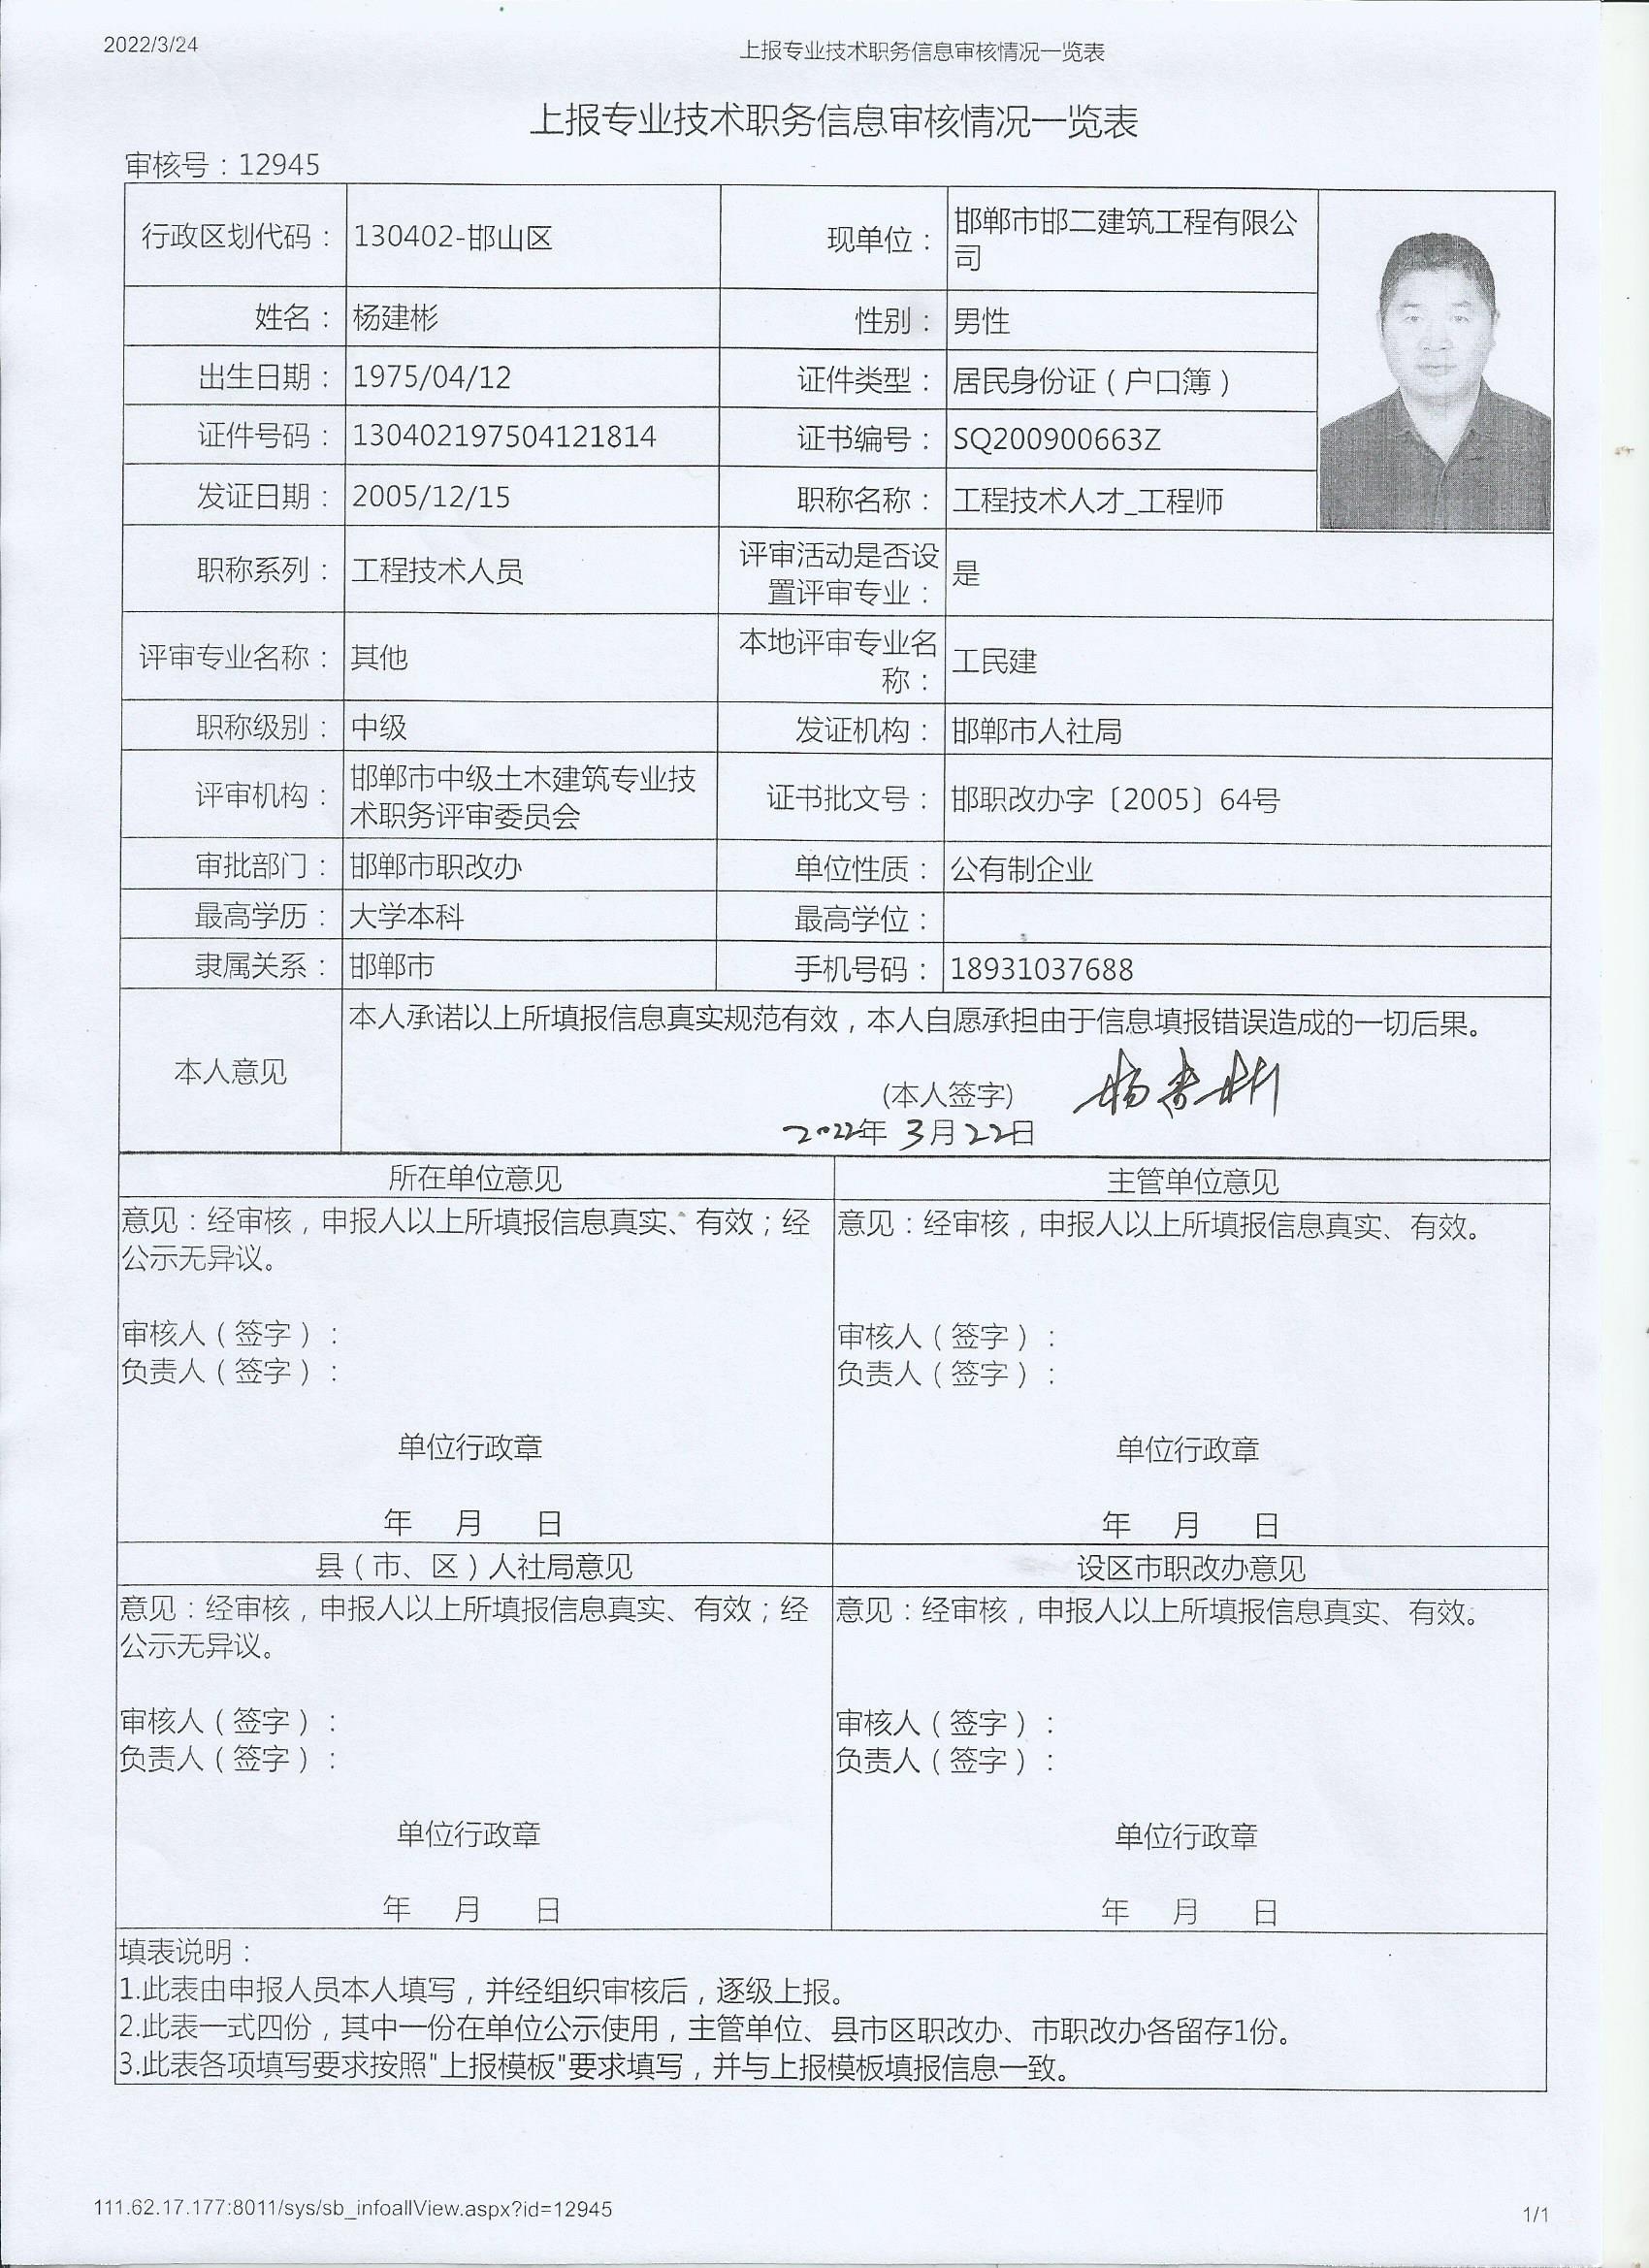 2022/3/24 上报专业技术职务信息审核情况一览表
上报专业技术职务信息审核情况一览表
审核号：12945
行政区划代码： 130402-邯山区 现单位： 邯郸市邯二建筑工程有限公
司
姓名： 杨建彬 性别： 男性
出生日期： 1975/04/12 证件类型： 居民身份证（户口簿）
证件号码： 130402197504121814 证书编号： SQ200900663Z
发证日期： 2005/12/15 职称名称： 工程技术人才_工程师
职称系列： 工程技术人员 评审活动是否设
置评审专业： 是
评审专业名称： 其他 本地评审专业名
称： 工民建
职称级别： 中级 发证机构： 邯郸市人社局
评审机构： 邯郸市中级土木建筑专业技
术职务评审委员会 证书批文号： 邯职改办字〔2005〕64号
审批部门： 邯郸市职改办 单位性质： 公有制企业
最高学历： 大学本科 最高学位：
隶属关系： 邯郸市 手机号码： 18931037688
本人意见 本人承诺以上所填报信息真实规范有效，本人自愿承担由于信息填报错误造成的一切后果。
(本人签字) 杨建彬
2022年 3月22日
所在单位意见 主管单位意见
意见：经审核，申报人以上所填报信息真实、有效；经
公示无异议。
意见：经审核，申报人以上所填报信息真实、有效。
审核人（签字）： 审核人（签字）：
负责人（签字）： 负责人（签字）：
单位行政章 单位行政章
年 月 日 年 月 日
县（市、区）人社局意见 设区市职改办意见
意见：经审核，申报人以上所填报信息真实、有效；经
公示无异议。
意见：经审核，申报人以上所填报信息真实、有效。
审核人（签字）： 审核人（签字）：
负责人（签字）： 负责人（签字）：
单位行政章 单位行政章
年 月 日 年 月 日
填表说明：
1.此表由申报人员本人填写，并经组织审核后，逐级上报。
2.此表一式四份，其中一份在单位公示使用，主管单位、县市区职改办、市职改办各留存1份。
3.此表各项填写要求按照"上报模板"要求填写，并与上报模板填报信息一致。
111.62.17.177:8011/sys/sb_infoallView.aspx?id=12945 1/1